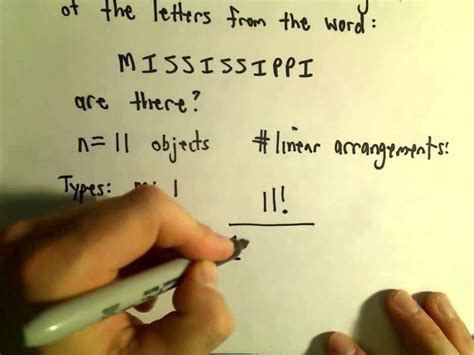 of the letters from the word:
MISSISSIPPI
are there?
n=11 objects #linear arrangements:
Types: m: 1 11!